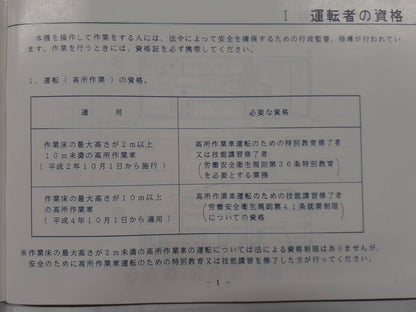 Ⅰ 運転者の資格
本機を操作して作業をする人には、法令によって安全を確保するための行政監督、指導が行われています。作業を行うときには、資格証を必ず携帯してください。
1．運転（高所作業）の資格。
適用
必要な資格
作業床の最大高さが2m以上
10m未満の高所作業車
（平成2年10月1日から施行）
高所作業車運転のための特別教育修了者
又は技能講習修了者
（労働安全衛生規則第36条特別教育
を必要とする業務）
作業床の最大高さが10m以上
の高所作業車
（平成4年10月1日から適用）
高所作業車運転のための技能講習修了者
（労働安全衛生規則第41条就業制限
についての資格）
※作業床の最大高さが2m未満の高所作業車の運転については法による資格制限はありませんが、
安全のために高所作業車運転のための特別教育又は技能講習を修了した方が行ってください。
－1－